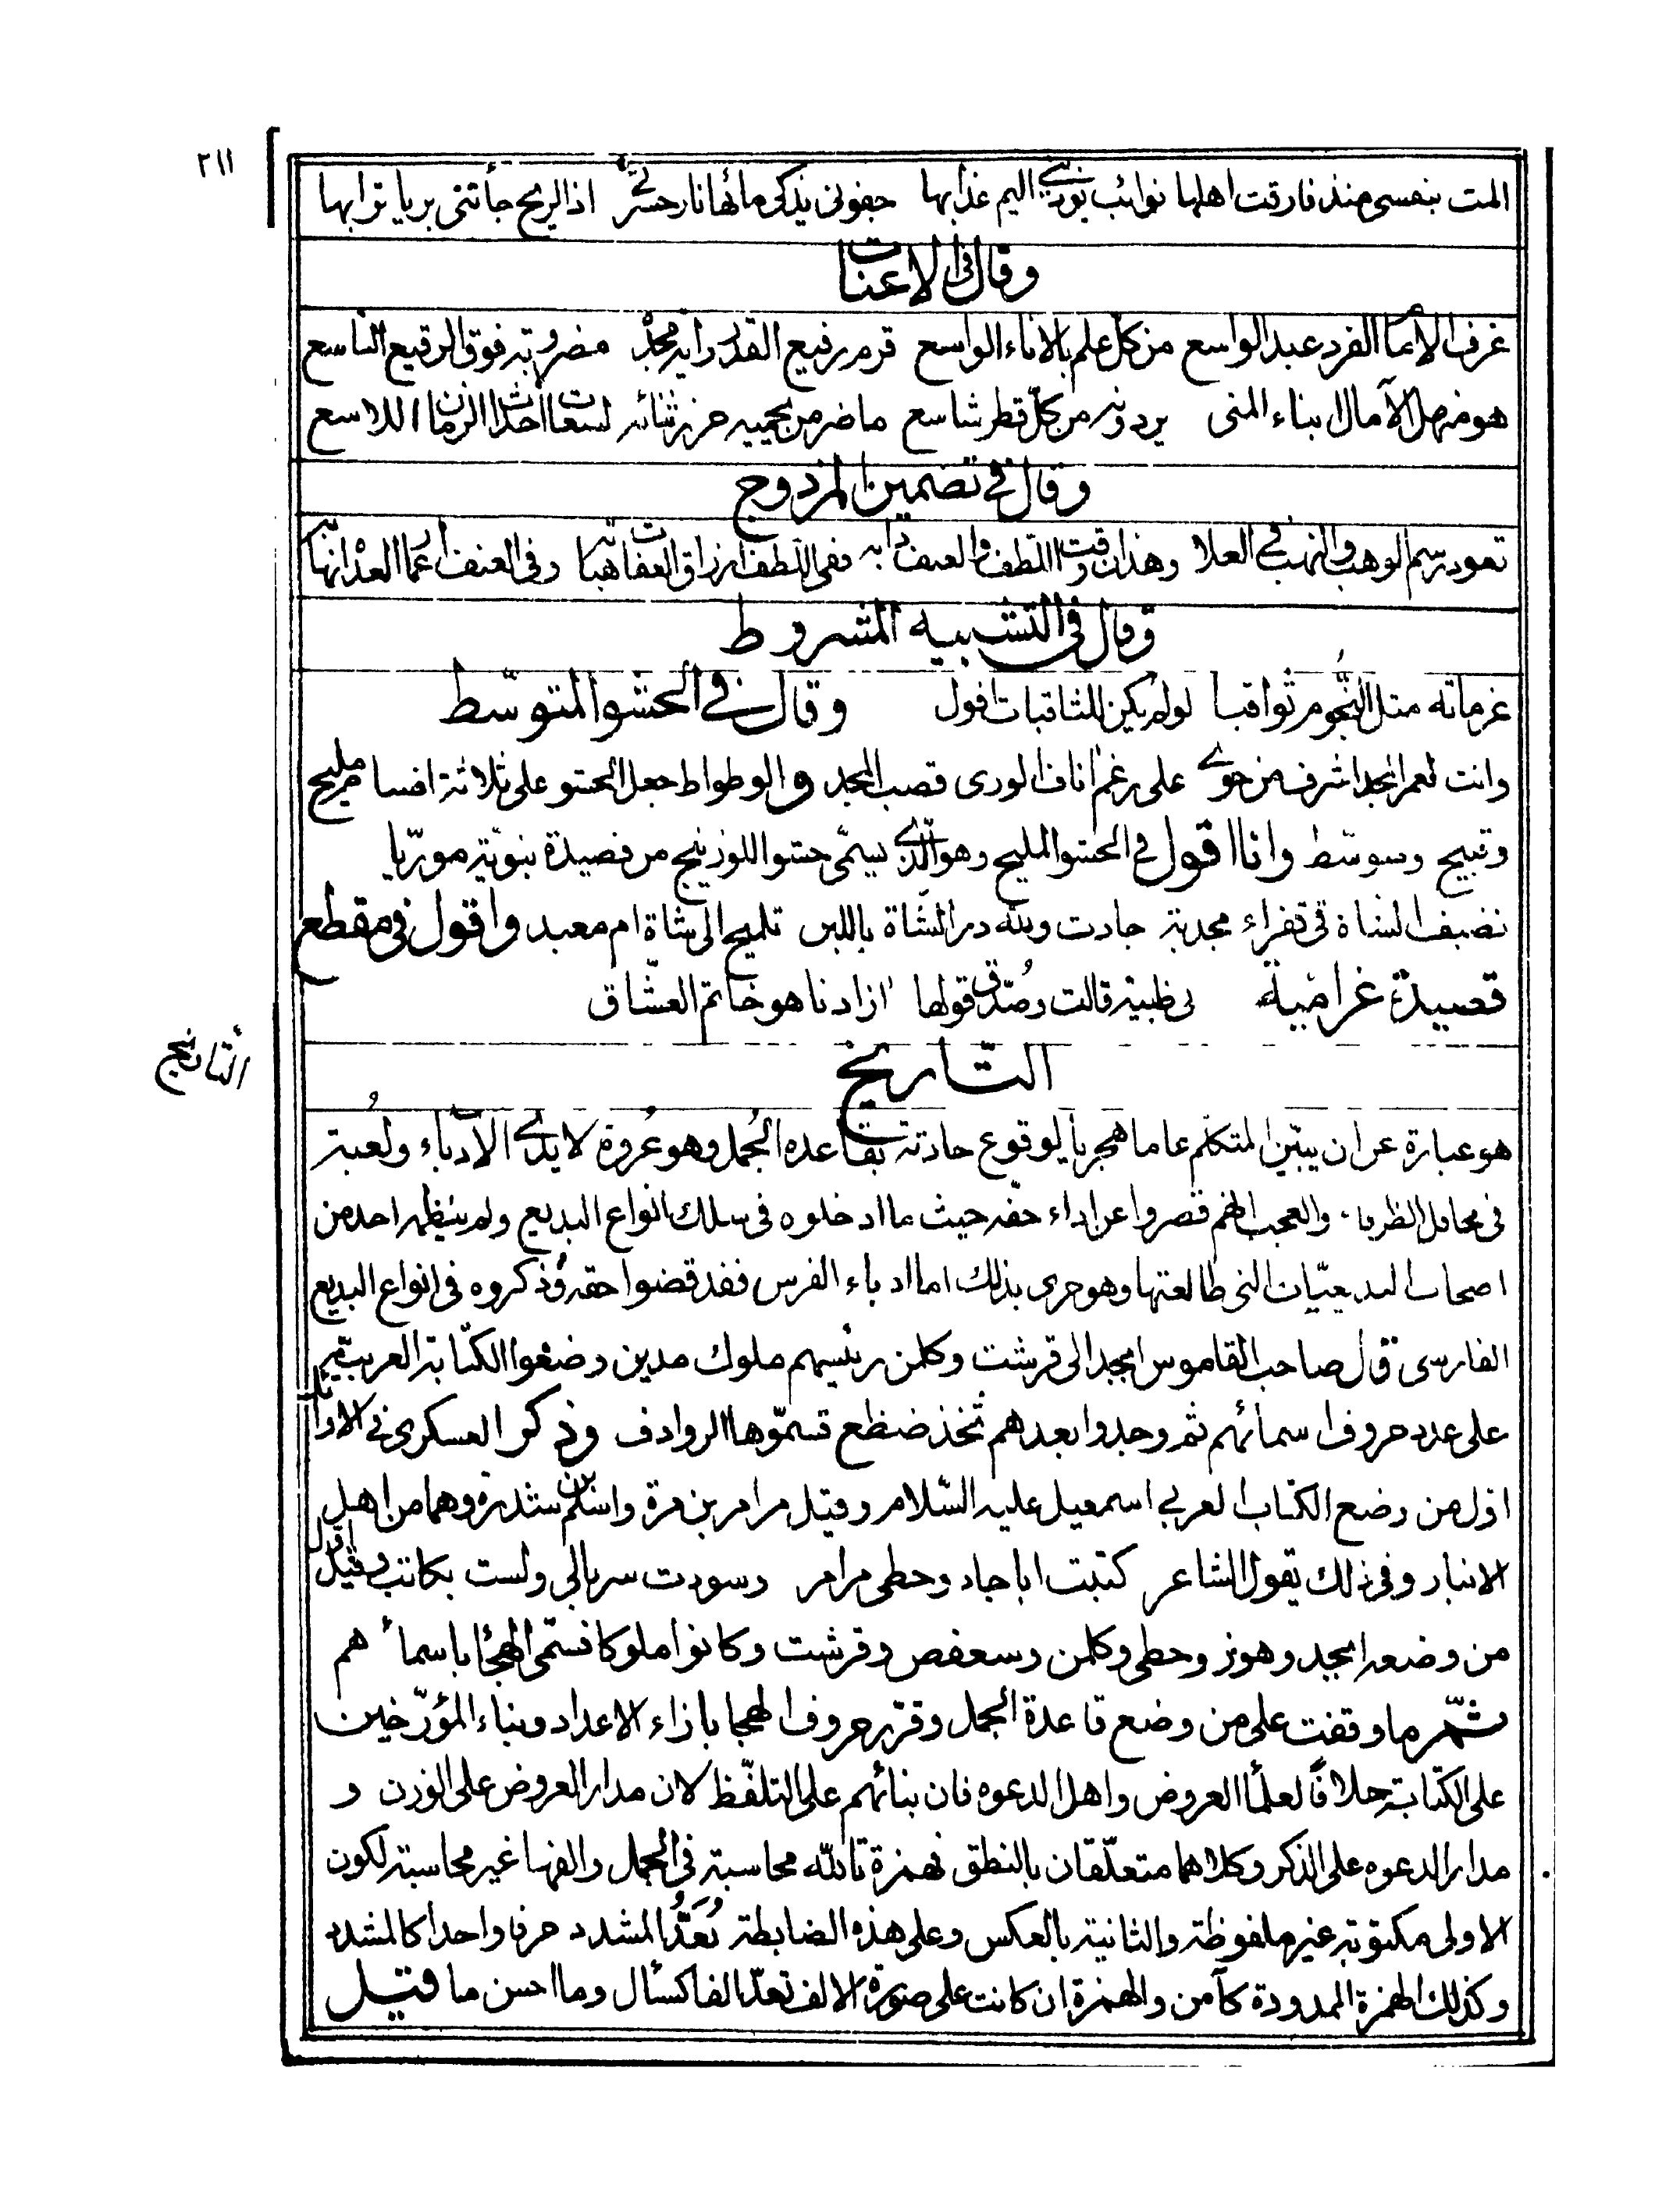 ٢١١
المت بنفسى منذ فارقت اهلها نوائب يوذى اليم عذابها جفونى يذكى مائها نار حسرة اذا الريح جأتنى بريا ترابها
وقال فى الاعنات
غرف الأمام الفرد عبد الواسع من كل علم بالاناء الواسع قرم رفيع القدر راية مجده مضروبة فوق الرقيع التاسع
هو منهل الآمال ابناء المنى يردونه من كل قطر شاسع ما ضر من يحميه حرز ثنائه لسعات احداث الزمان اللاسع
وقال فى تضمين المزدوج
تعود رسم الوهب والنهب فى العلا وهذان وقت اللطف والعنف دابه ففى اللطف ارزاق العفات هباته وفى العنف اعمار العدْا نهابه
وقال فى التشبيه المشروط
عزماته مثل النّجوم ثواقبا لو لم يكن للثاقبات افول وقال فى الحشو المتوسّط
وانت لعمر المجد اشرف من حوى على رغم اناف الورى قصب المجد والوطواط جعل الحشو على ثلاثة اقسام مليح
وقبيح ومتوسّط وانا اقول فى الحشو المليح وهو الّذى يسمّى حشو اللوزينج من قصيدة نبويّة مورّيا
نضيف الشاة فى قفراء مجدبة جادت ولله در الشّاة باللبن تلميح الى شاة ام معبد واقول فى مقطع
قصيدة غراميّة لى ظبية قالت وصُدّق قولها ازادنا هو خاتم العشّاق
التّاريخ
التّاريخ
هو عبارة عن ان يبيّن المتكلّم عاما هجريا لوقوع حادثة بقاعدة الجُمل وهو عُروة لايدى الأدباء ولُعبة
فى محافل الظرفاء والعجب انهم قصروا عن اداء حقّه حيث ما ادخلوه فى سلك انواع البديع ولم ينظمه احد من
اصحاب البديعيّات التى طالعتها وهو حرى بذلك اما ادباء الفرس فقد قضوا حقه وذكروه فى انواع البديع
الفارسى قال صاحب القاموس ابجد الى قرشت وكلمن رئيسهم ملوك مدين وضعوا الكتابة العربيّة
على عدد حروف اسمائهم ثم وجدوا بعدهم ثخذ ضظغ فسمّوها الروادف وذكر العسكرى فى الاوائل
اوّل من وضع الكتاب العربى اسمعيل عليه السّلام وقيل مرامر بن مرة واسلم بن سدرة وهما من اهل
الانبار وفى ذلك يقول الشاعر كتبت ابا جاد وحطى مرامر وسودت سربالى ولست بكاتب وقيل اوّل
من وضعه ابجد وهوز وحطى وكلمن وسعفص وقرشت وكانوا ملوكا فسمّى الهجأ باسمأهم
ثمّ ما وقفت على من وضع قاعدة الجمل وقرّر حروف الهجا بازاء الاعداد وبناء المؤرّخين
على الكتابة خلافًا لعلمأ العروض واهل الدعوه فان بنائهم على التلفّظ لان مدار العروض على الوزن و
مدار الدعوه على الذكر وكلاهما متعلّقان بالنطق فهمزة تالله محاسبة فى الجمل والفها غير محاسبة لكون
الاولى مكتوبة غير ملفوظة والثانية بالعكس وعلى هذه الضابطة تُعَدُّ المشدد حرفا واحدا كالمشدد
وكذلك الهمزة الممدودة كآمن والهمزة ان كانت على صورة الالف تعدّ الفا كسأل وما احسن ما قيل